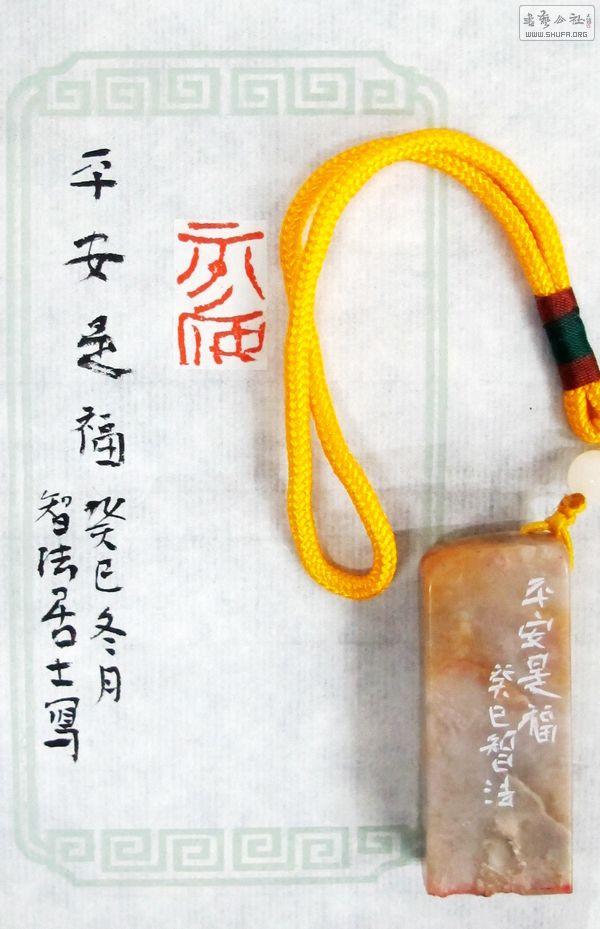 平安是福
癸巳冬月
智法居士寫
平安是福
癸巳智法
書藝公社
WWW.SHUFA.ORG